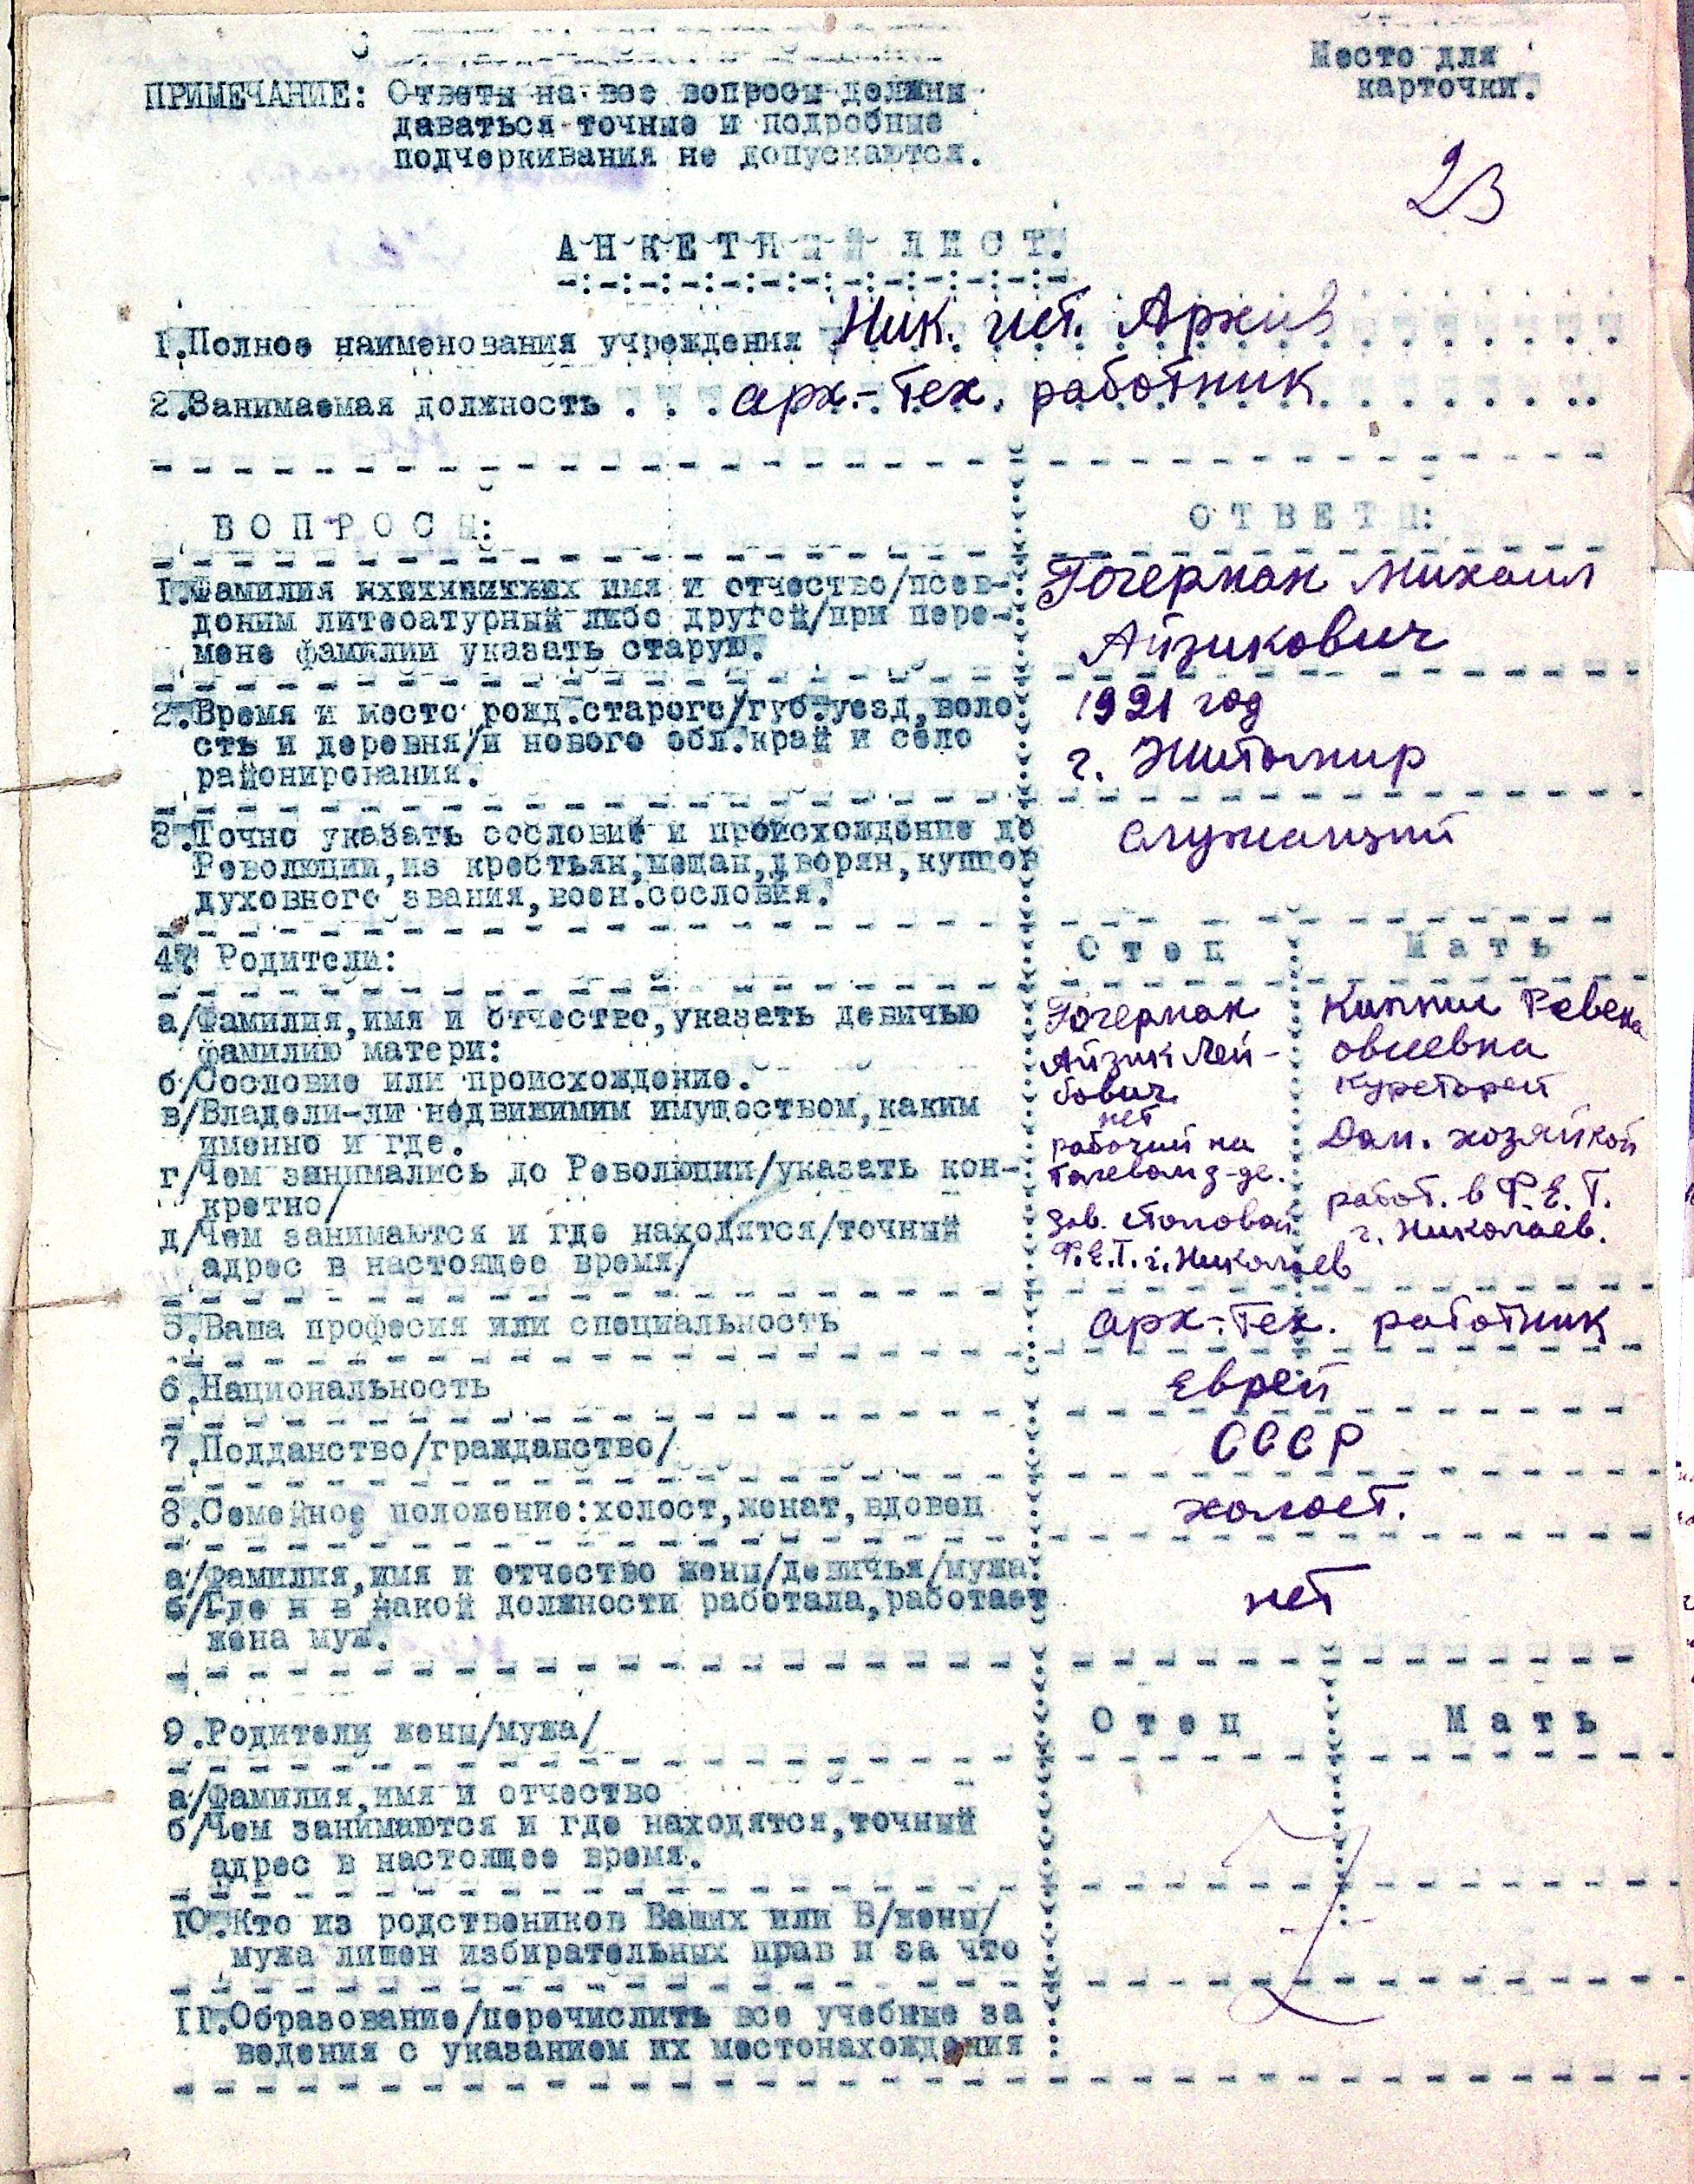 Место для
карточки.
ПРИМЕЧАНИЕ: Ответы на все вопросы должны
даваться точные и подробные
подчеркивания не допускаются.
23
АНКЕТНЫЙ ЛИСТ.
1.Полное наименования учреждения Ник. ист. Архив
2.Занимаемая должность . . . арх.-тех. работник
ВОПРОСЫ: ОТВЕТЫ:
1.Фамилия имя и отчество/псев- Гочерман Михаил
доним литературный либо другой/при пере- Айзикович
мене фамилии указать старую.
2.Время и место рожд.старого/губ.уезд,воло 1921 год
сть и деревня/и нового обл.край и село г. Житомир
районирования.
3.Точно указать сословие и происхождение до служащий
Революции,из крестьян,мещан,дворян,купцов
духовного звания,воен.сословия.
4. Родители: Отец Мать
а/Фамилия,имя и отчество,указать девичью Гочерман Ревека
фамилию матери: Айзик Лей- овшевна
б/Сословие или происхождение. бович
в/Владели-ли недвижимим имуществом,каким нет
именно и где. рабочий на Дом. хозяйкой
г/Чем занимались до Революции/указать кон-
кретно/ работ. в Ф.Е.Т.
д/Чем занимаются и где находятся/точный Зав. столовой г. Николаев.
адрес в настоящее время/ Ф.Е.Т. г. Николаев
5.Ваша професия или специальность арх-тех. работник
6.Национальность еврей
7.Подданство/гражданство/ СССР
8.Семейное положение:холост,женат,вдовец холост.
а/Фамилия,имя и отчество жены/девичья/мужа.
б/Где и в какой должности работала,работает нет
жена муж.
9.Родители жены/мужа/ Отец Мать
а/Фамилия,имя и отчество
б/Чем занимаются и где находятся,точный
адрес в настоящее время.
10.Кто из родствеников Ваших или В/жены/
мужа лишен избирательных прав и за что
11.Образование/перечислить все учебные за
ведения с указанием их местонахождения